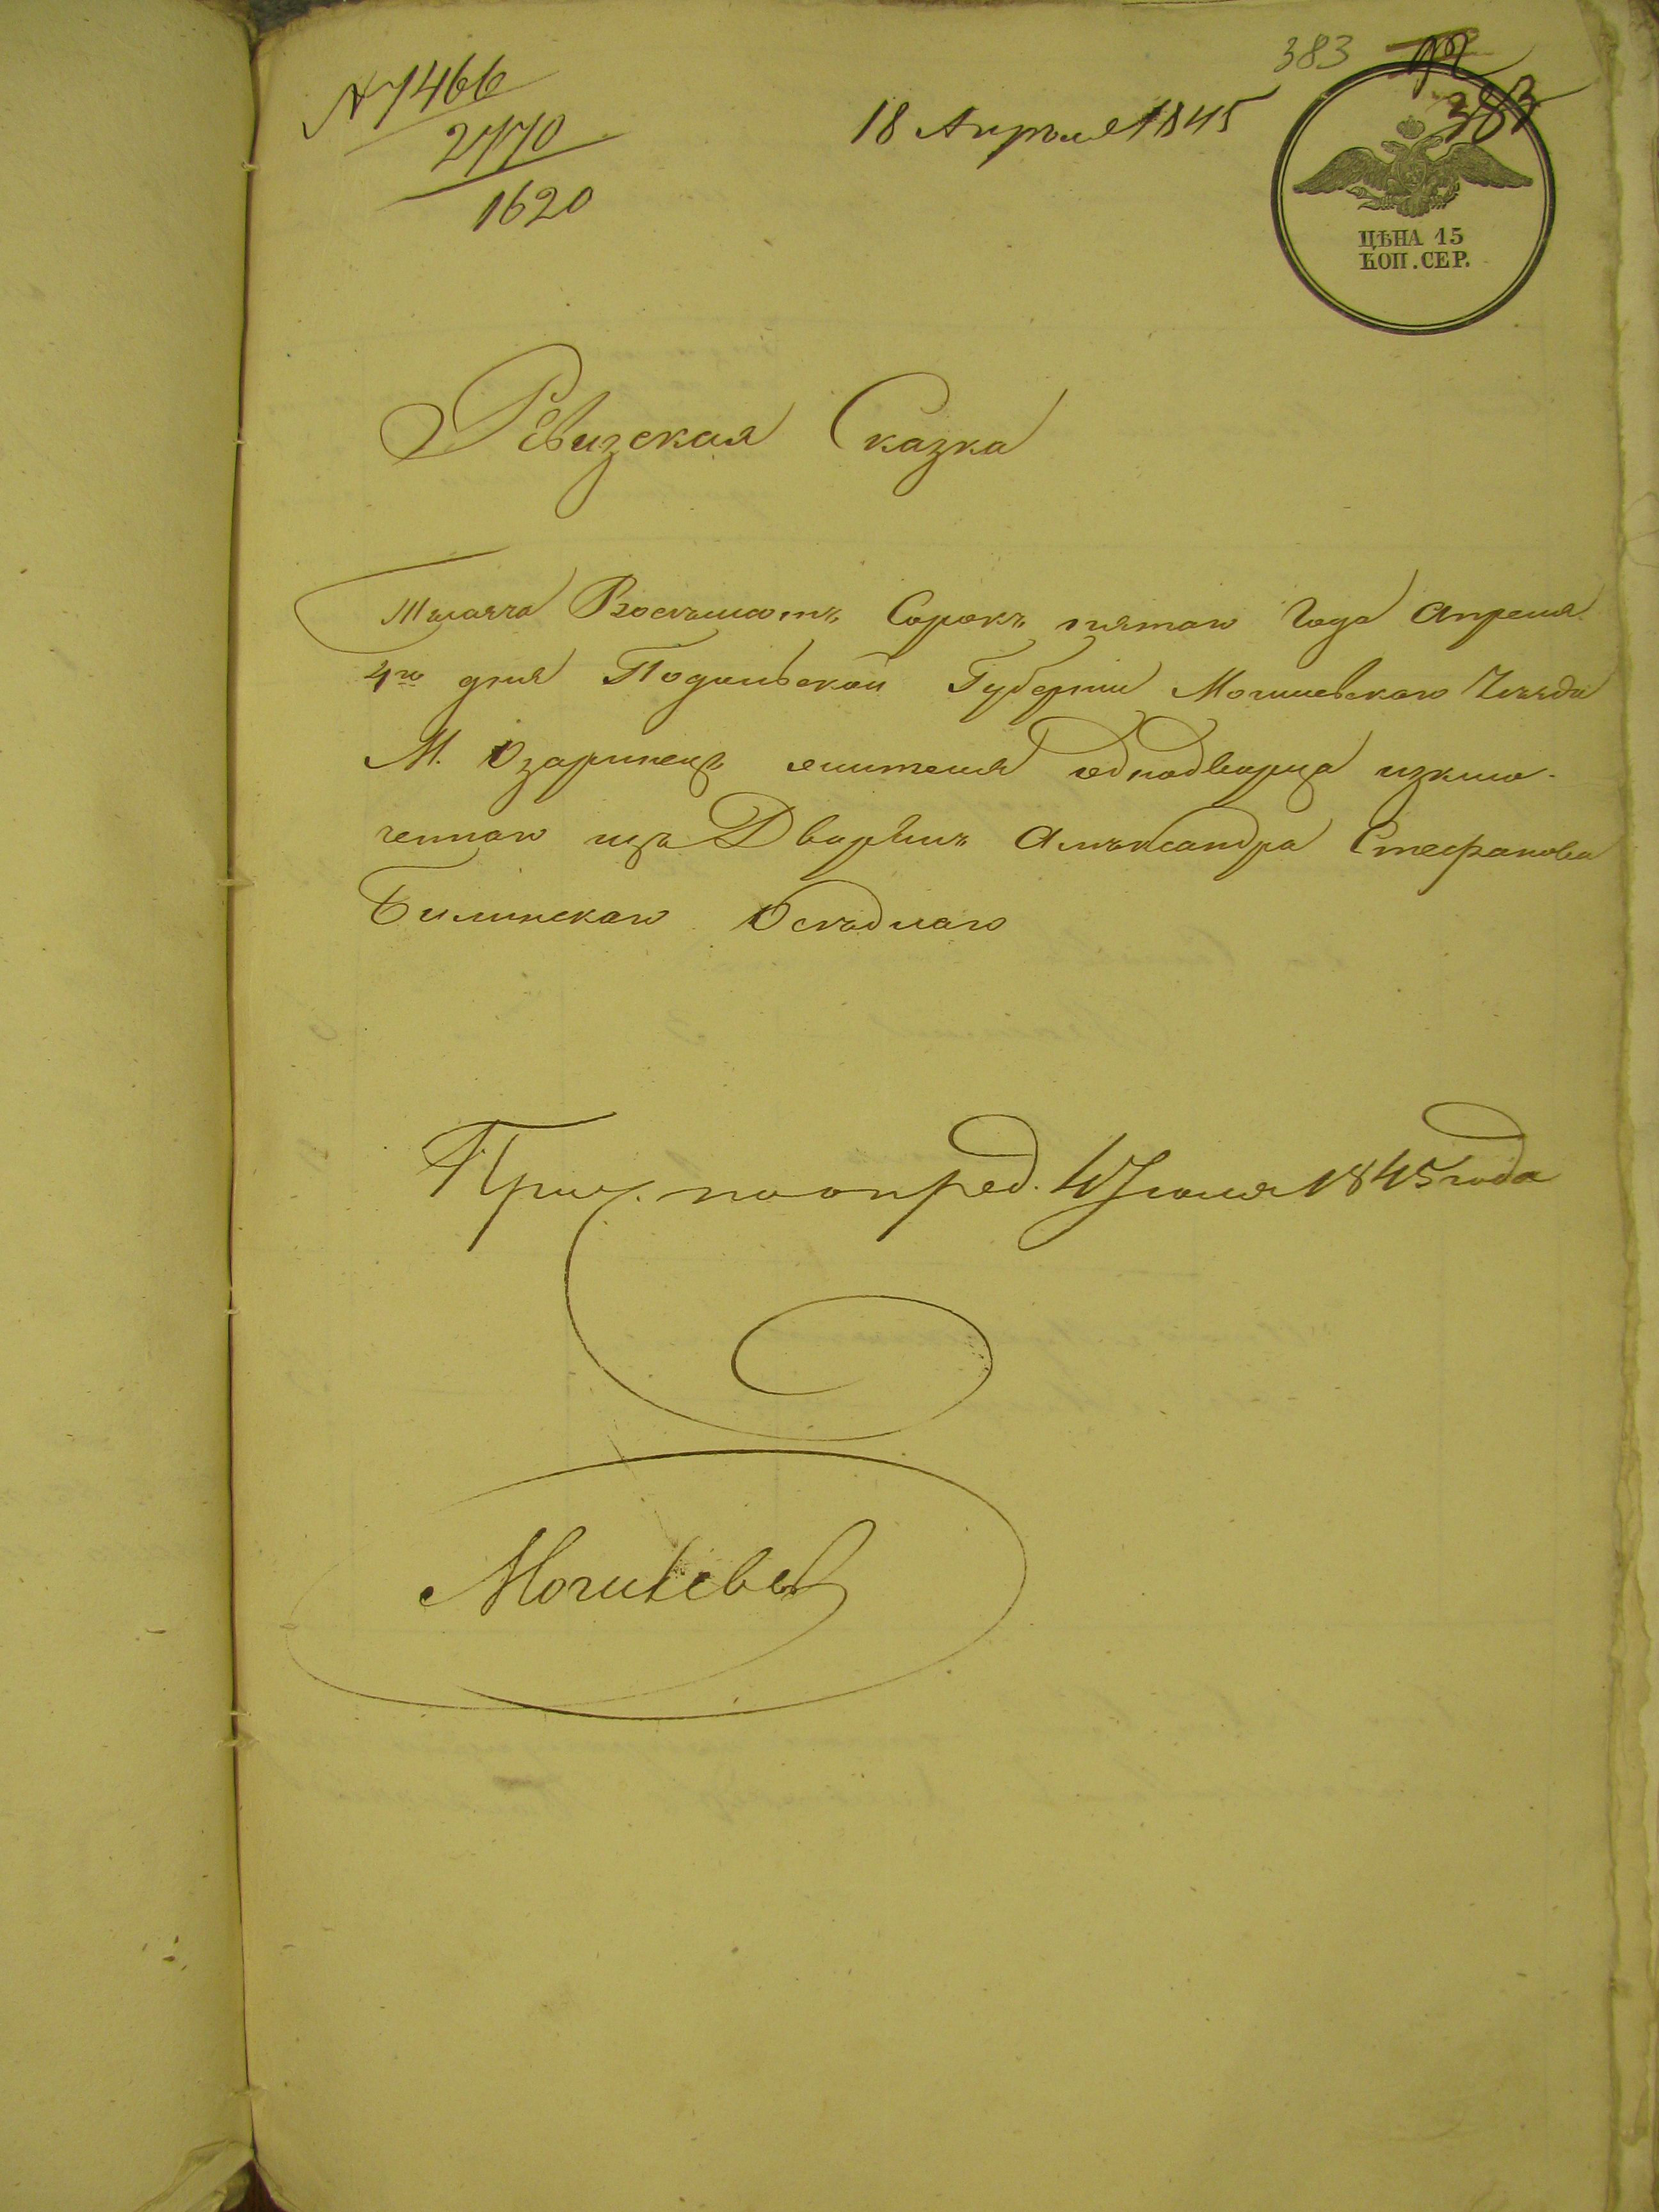 № 7466
2770
1620
18 Апрѣля 1845
383
383
ЦѢНА 15
КОП. СЕР.
Ревизская Сказка
Тысяча Восемьсотъ Сорокъ пятаго Года Апреля
4го дня Подольской Губерніи Могилевскаго Уѣзда
М. Озаринецъ жителя однодворца изклю-
ченнаго изъ Дворянъ Александра Стефанова
Билинскаго Осѣдлаго
Прич. по опред. 4 Іюля 1845 года
Могилевъ